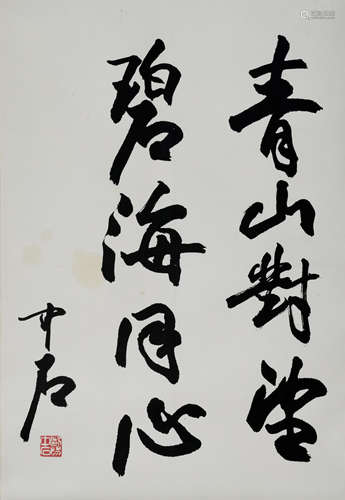 青山對望
碧海同心
中石